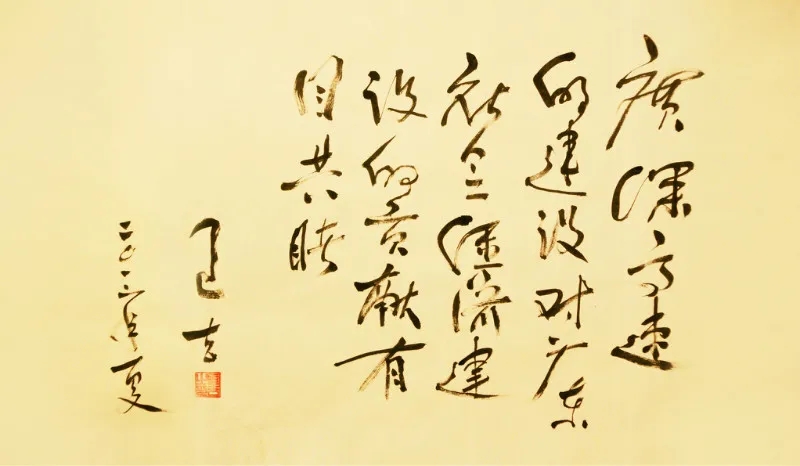 廣深高速
的建设对广东
社会经济建
设的贡献有
目共睹
匡吉
二〇一三年夏